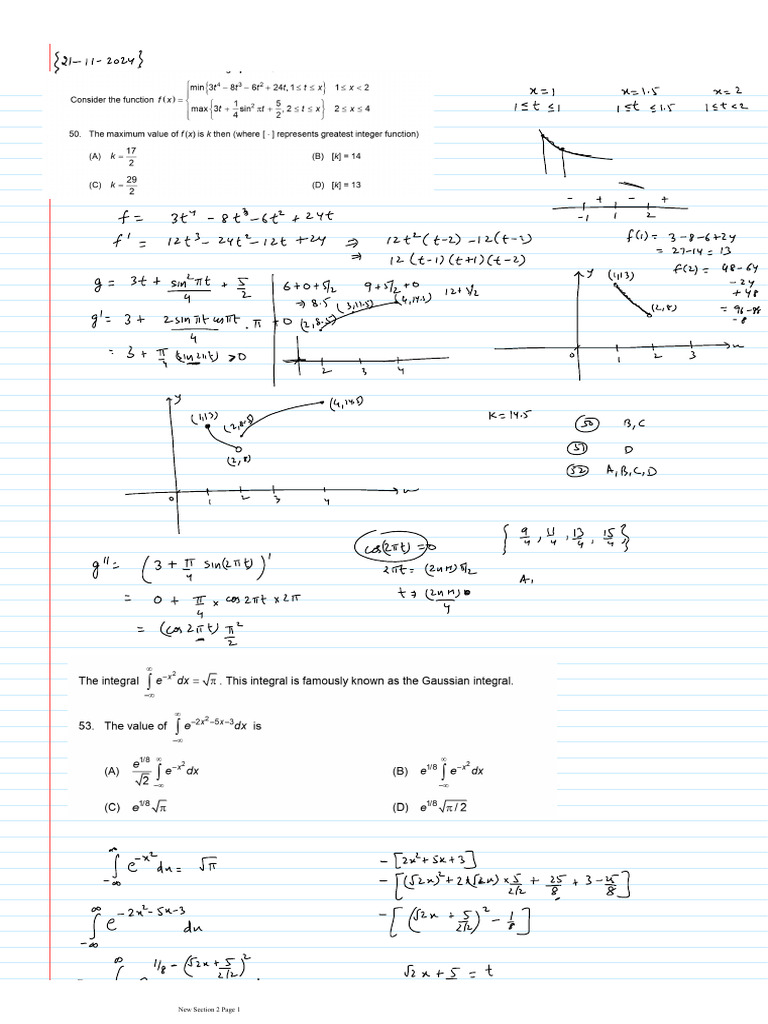 {21-11-2024}
Consider the function f(x) = { min{3t⁴ – 8t³ – 6t² + 24t, 1 ≤ t ≤ x} 1 ≤ x < 2
max{3t + 1/4 sin² πt + 5/2, 2 ≤ t ≤ x} 2 ≤ x ≤ 4
x=1 x=1.5 x=2
1≤t≤1 1≤t≤1.5 1≤t<2
50. The maximum value of f(x) is k then (where [ · ] represents greatest integer function)
(A) k = 17/2 (B) [k] = 14
(C) k = 29/2 (D) [k] = 13
- + - +
-1 1 2
f = 3t⁴ - 8t³ - 6t² + 24t
f' = 12t³ - 24t² - 12t + 24 ⇒ 12t²(t-2) - 12(t-2)
⇒ 12(t-1)(t+1)(t-2)
f(1) = 3-8-6+24
= 27-14 = 13
f(2) = 48-64
-24
+48
= 96-88
= 8
g = 3t + sin²πt/4 + 5/2
g' = 3 + 2sinπt cosπt/4 . π + 0
= 3 + π/4 (sin2πt) > 0
6+0+5/2 9+5/2+0 12+5/2
⇒ 8.5 (3,11.5) (4,14.5)
(2,8.5)
2 3 4
y (1,13)
(2,8)
0 1 2 3 x
y
(1,13) (2,8.5) (4,14.5)
(2,8)
0 1 2 3 4 x
K = 14.5
50 B,C
51 D
52 A,B,C,D
g'' = (3 + π/4 sin(2πt))'
= 0 + π/4 × cos2πt × 2π
= (cos2πt) π²/2
cos(2πt) = 0
2πt = (2n+1)π/2
t ⇒ (2n+1)/4
{9/4, 11/4, 13/4, 15/4}
A,
The integral ∫_{–∞}^{∞} e^{–x²} dx = √π . This integral is famously known as the Gaussian integral.
53. The value of ∫_{–∞}^{∞} e^{–2x²–5x–3} dx is
(A) e^{1/8}/√2 ∫_{–∞}^{∞} e^{–x²} dx (B) e^{1/8} ∫_{–∞}^{∞} e^{–x²} dx
(C) e^{1/8} √π (D) e^{1/8} √π / 2
∫_{-∞}^{∞} e^{-x²} dx = √π
∫_{-∞}^{∞} e^{-2x²-5x-3} dx
1/8 - (√2x + 5/2√2)²
- [2x² + 5x + 3]
- [(√2x)² + 2×(√2x) × 5/2√2 + 25/8 + 3 - 25/8]
- [(√2x + 5/2√2)² - 1/8]
√2x + 5 = t
New Section 2 Page 1